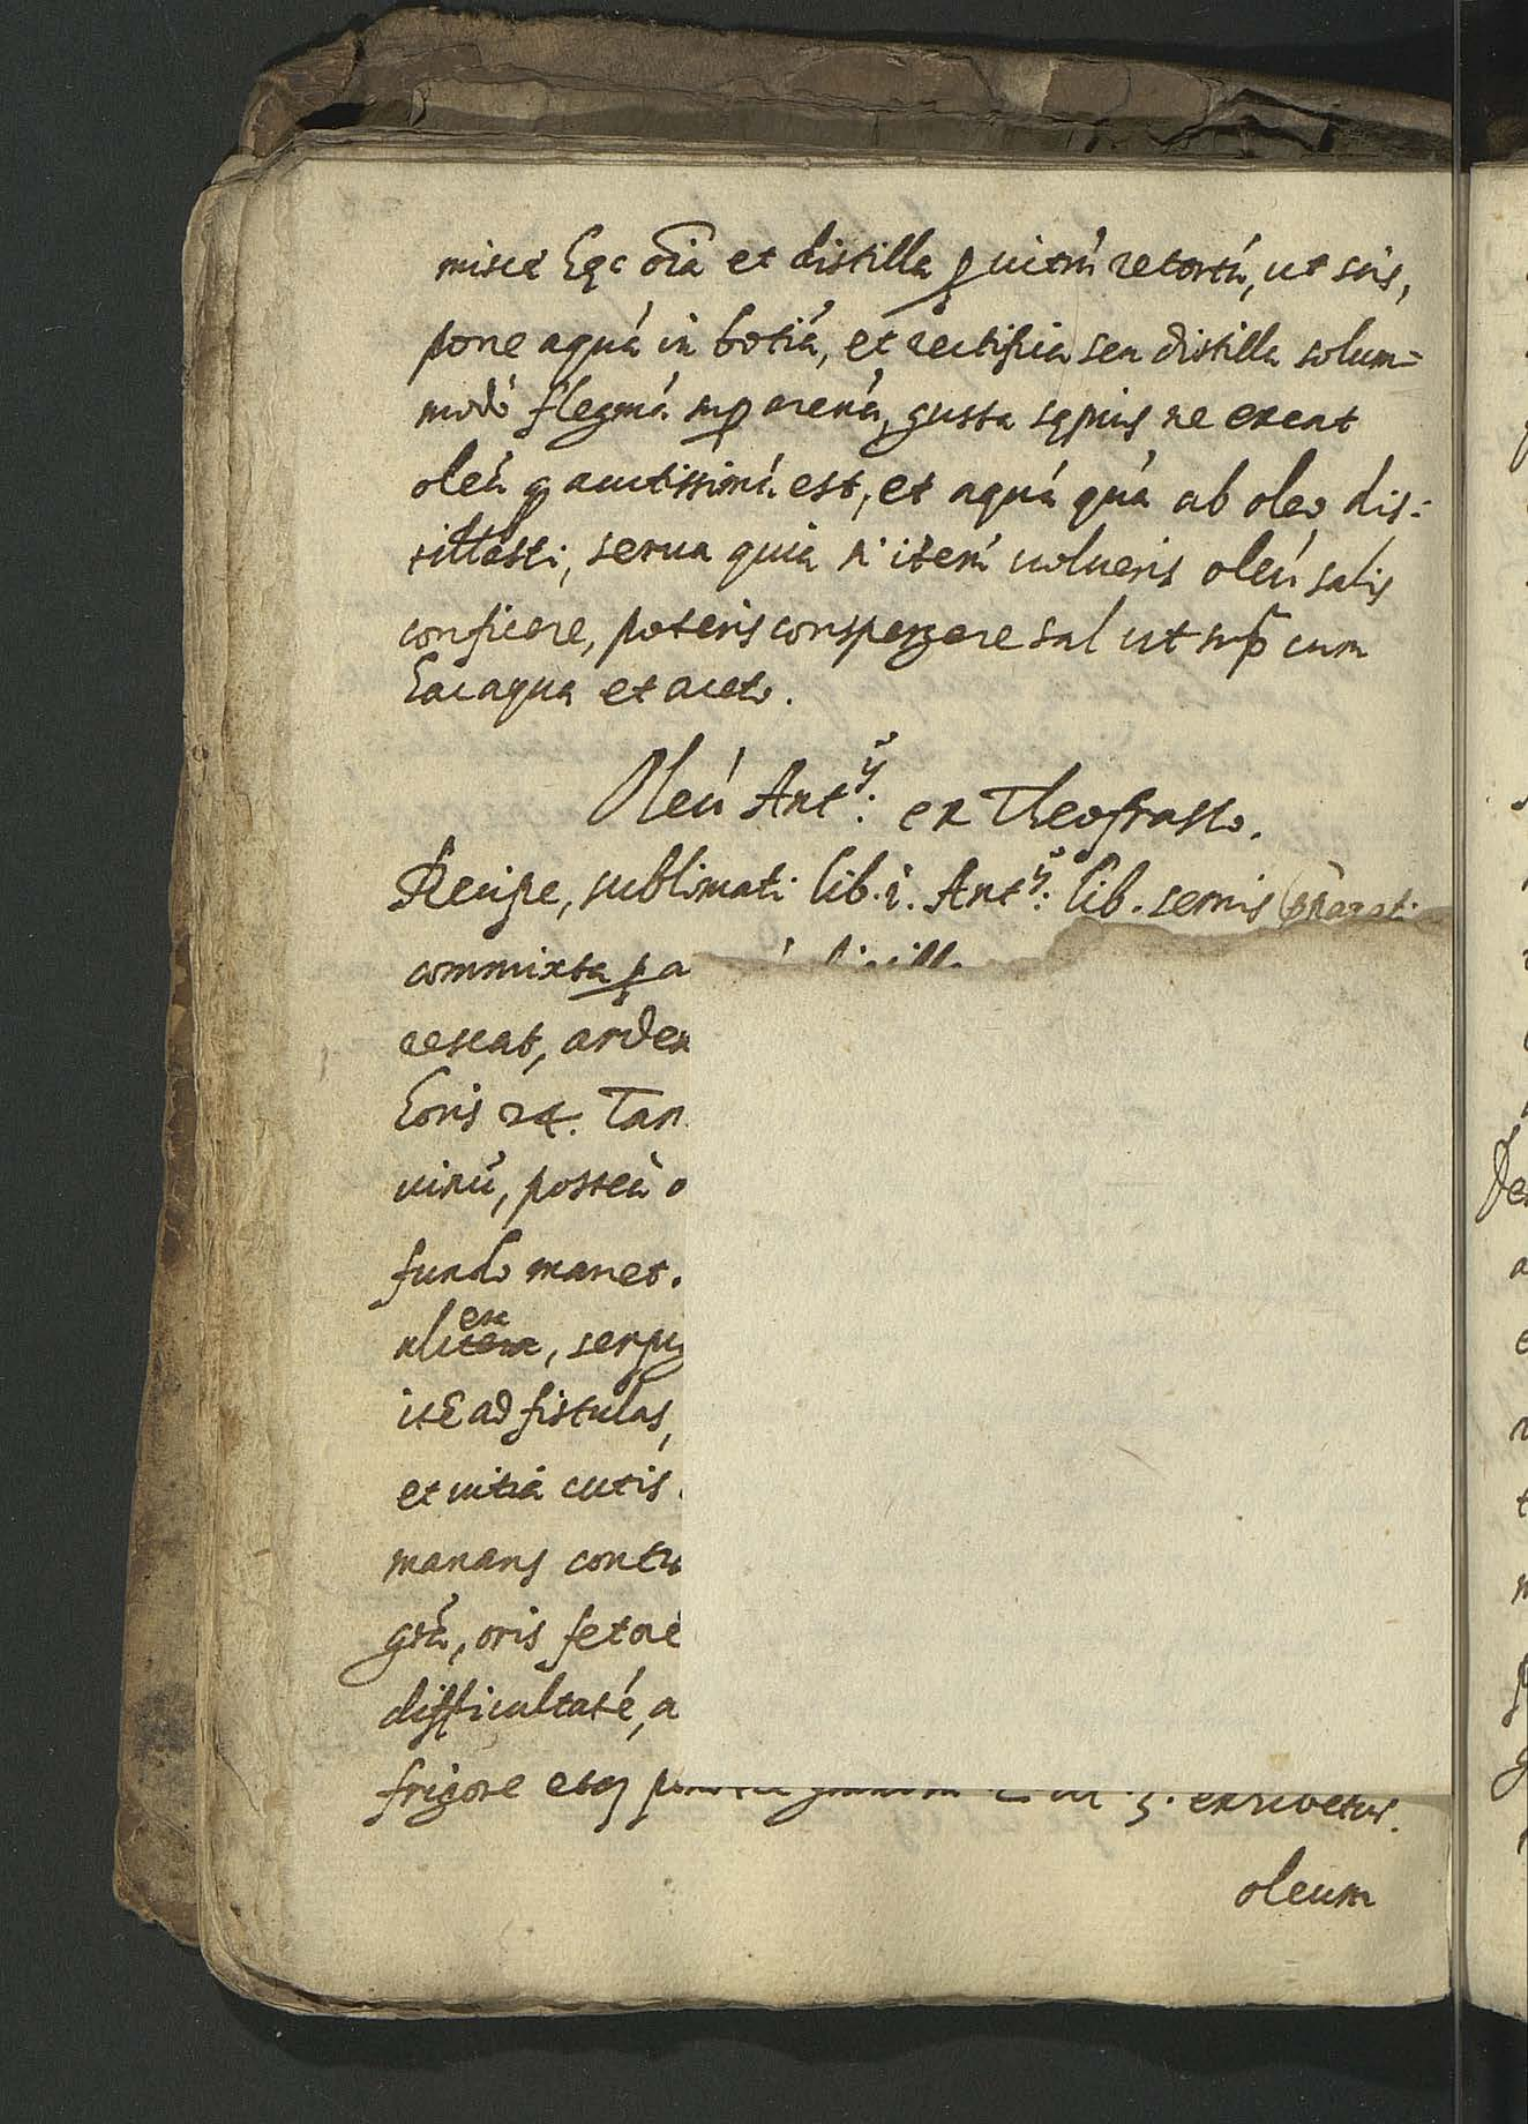 misce hęc oīa et distilla ꝑ uitrú retortú, ut scis,
pone aquá in botiá, et rectifica seu distilla solum=
modó flegmá sup arená, gusta sępius ne exeat
oleú q acutissimú est, et aquá quá ab oleo dis:
tillasti, serua quia si iterú uolueris oleú salis
conficere, poteris conspergere sal ut sup̄ cum
hac aqua et aceto.
Oleú Ant.ÿ ex Theofrasto.
Recipe, sublimati lib. i. Ant.ÿ lib. semis
commixta ꝑ a
rescat, arden
horis 24. Tan
uinú, posteà o
fundo manet.
ulcera, serpi
ité ad fistulas,
et uitia cutis
manans contu
grá, oris fetoré
difficultaté, a
frigore etq exsiccetur.
oleum